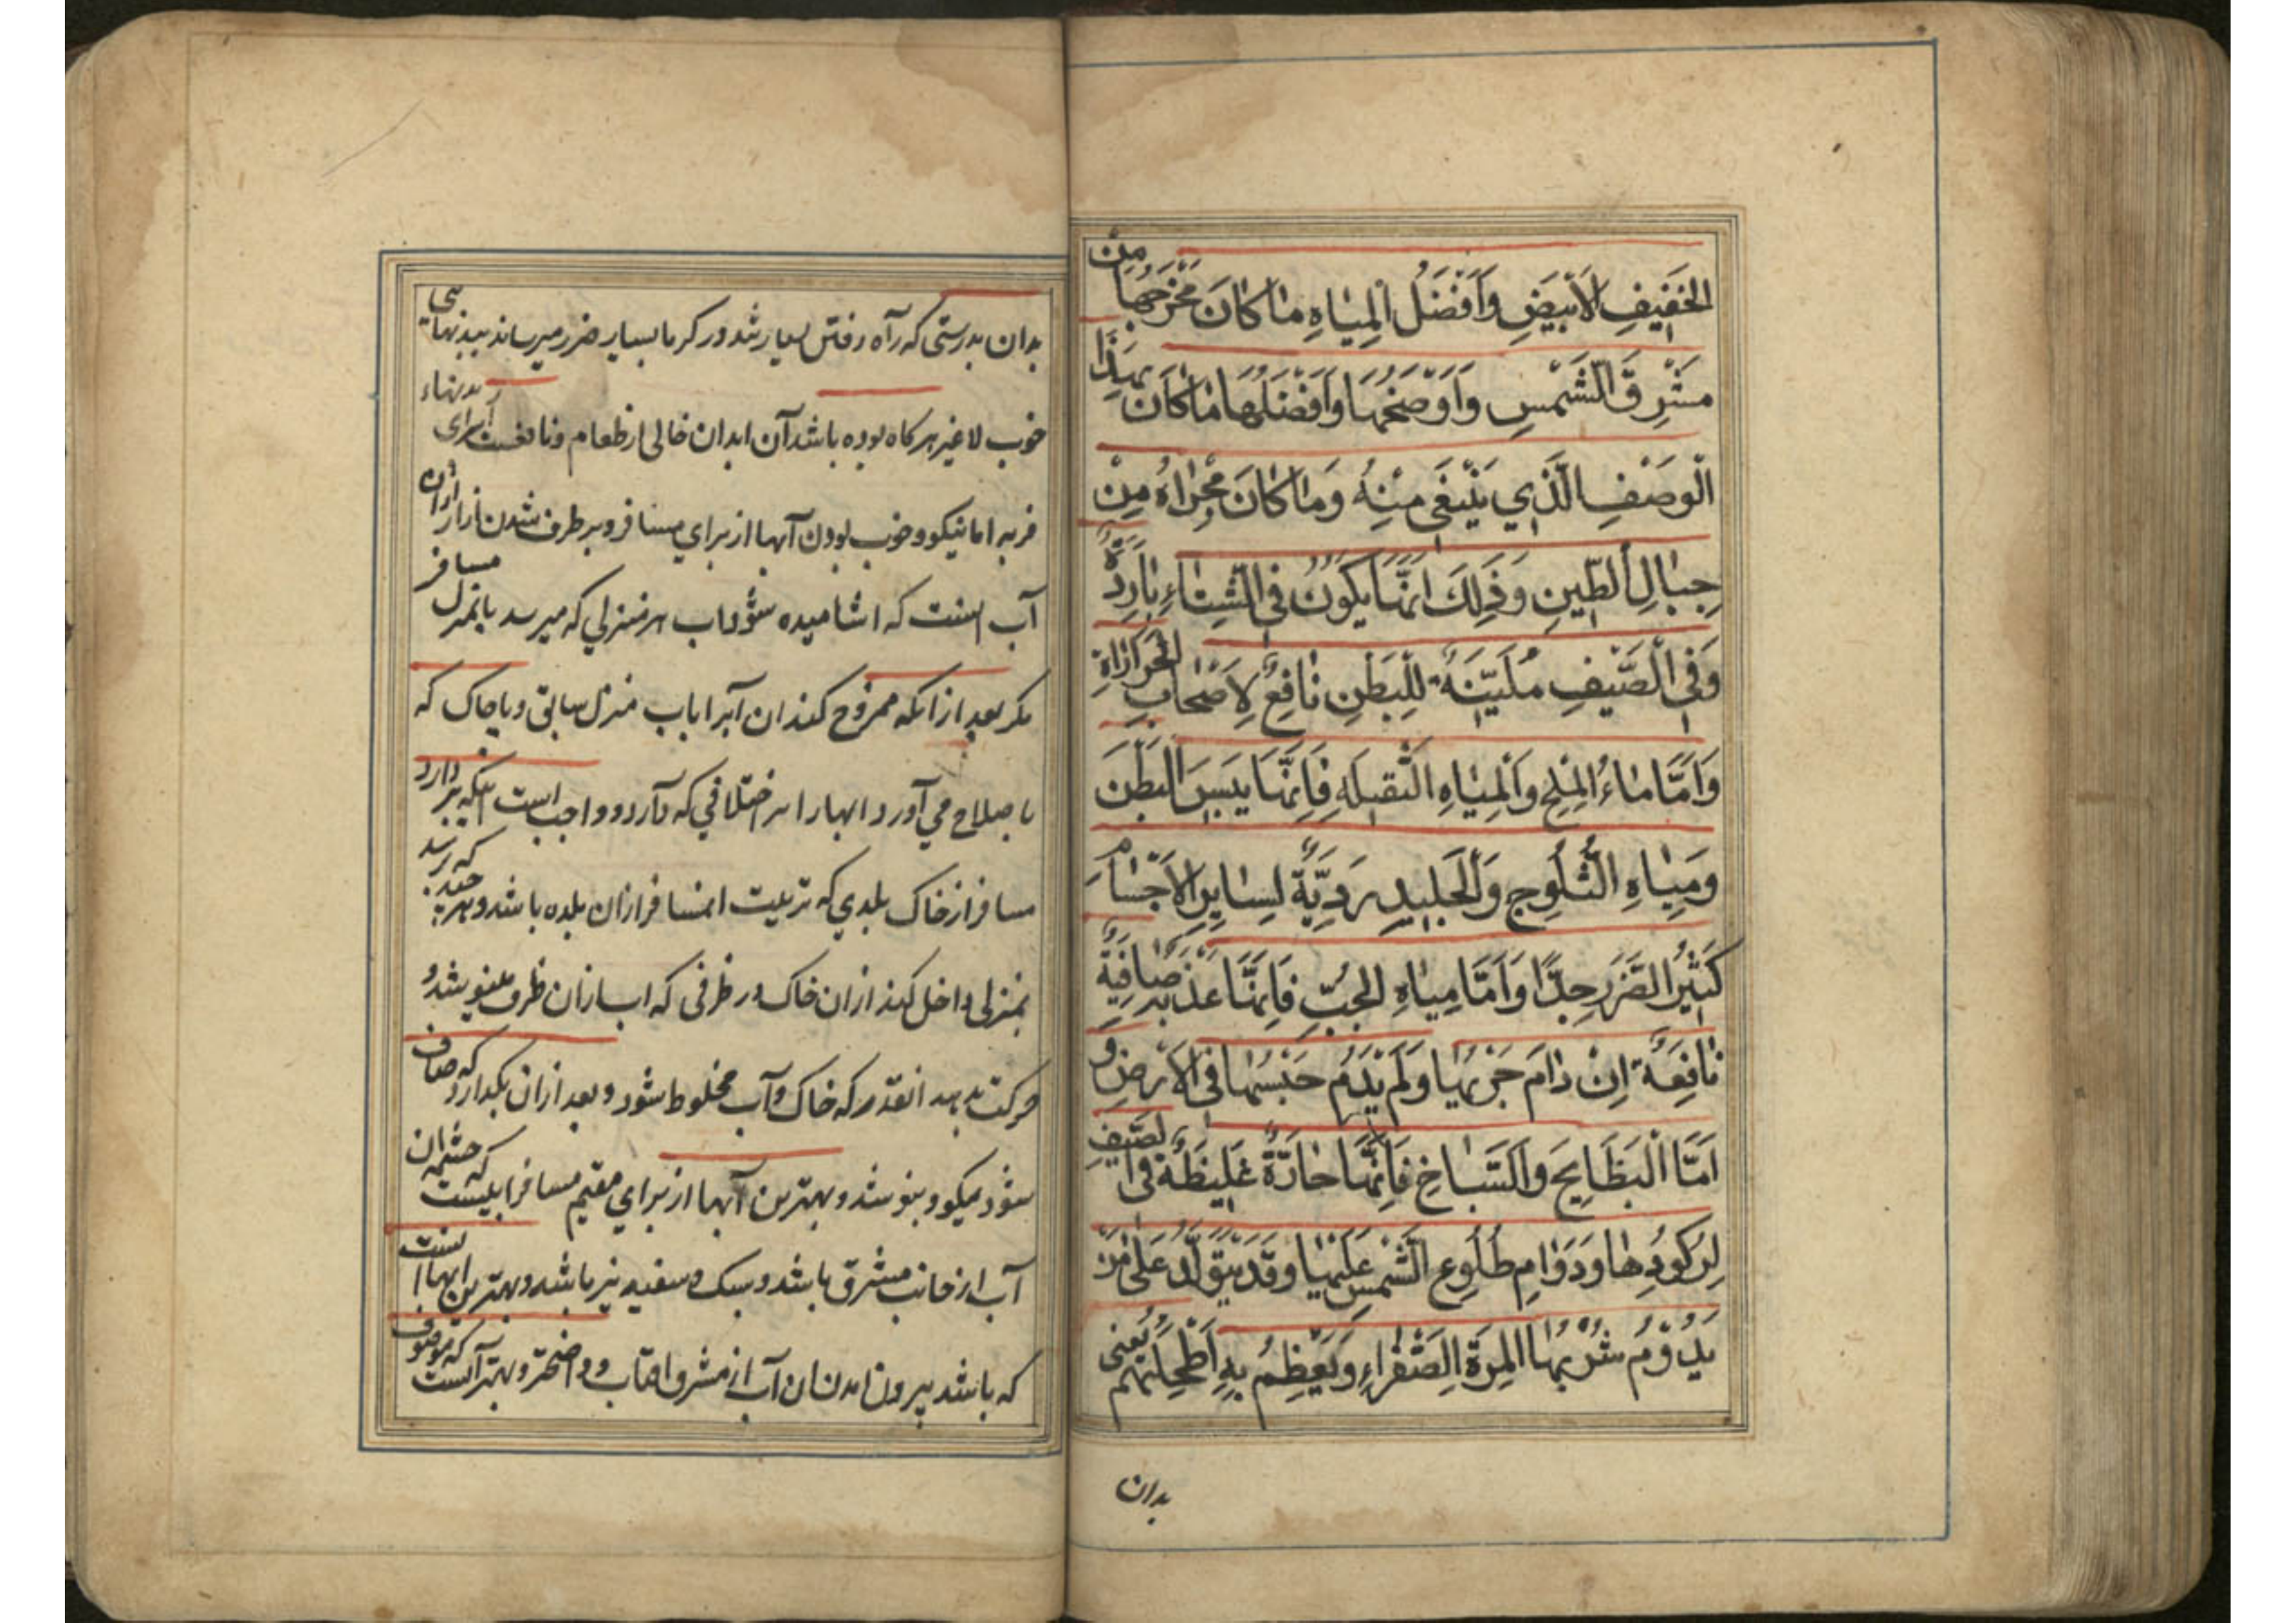 الخَفَيِفِ الاَبْيَضِ وَاَفْضَلُ المِيَاهِ مَا كَانَ مَخْرَجُهَا مِنْ
مَشْرِقِ الشَّمْسِ وَاَوْضَحُهَا وَاَفْضَلُهَا مَا كَانَ بِهَذَا
الْوَصْفِ الَّذِي يَنْبَغِي مِنْهُ وَمَا كَانَ مَجْرَاهُ مِنْ
جِبَالِ الطِّينِ وَذَلِكَ اَنَّهَا يَكُونُ فِي الشِّتَاءِ بَارِدَةً
وَفِي الصَّيْفِ مُلَيِّنَةً لِلْبَطْنِ نَافِعٌ لِاَصْحَابِ الْحَرَارَاةِ
وَاَمَّا مَاءُ المِلْحِ وَالمِيَاهِ الثَّقيلَهِ فَاِنَّهَا يَيْبَسَ الْبَطْنَ
وَمِيَاهِ الثُّلُوجِ وَالْجَلِيدِ رَدِيَّةٌ لِسَايِرِ الْاَجْسَامِ
كَثِيْرُ الضَّرَرِ جِدًّا وَاَمَّا مِيَاهِ الجُبِّ فَاِنَّهَا عَذْبَةٌ صَافِيَةٌ
نَافِعَةٌ اِنْ دَامَ جَرْيُهَا وَلَمْ يَدُمْ حَبْسُهَا فِي الْاَرْضِ وَ
اَمَّا الْبَطَايِحَ وَالسَّبَاخِ فَاِنَّهَا حَارَّةٌ غَلِيظَةٌ فِي الصَّيْفِ
لِرُكُودِهَا وَدَوَامِ طُلُوعِ الشَّمْسِ عَلَيْهَا وَقَدْ يَتَوَلَّدُ عَلَى مَنْ
يَدُوْمُ شُرْبُهَا المِرَةَ الصَّفْرَاءِ وَيُعَظِمُ بِهِ اَطْحِلَتُهُمْ يعنى
بدان
بدان بدرستى كه راه رفتن بسيار شد در كرما بسيار ضرر ميرساند ببدنهاى
خوب لاغير هركاه بوده باشد آن ابدان خالى از طعام و نافعست براى بدنهاء
فربه اما نيكو و خوب بودن آبها از براي مسافر و برطرف شدن ازار ازان
آب انست كه اشاميده شود اب هر منزلي كه ميرسد بانمنزل مسافر
مكر بعد از انكه ممزوج كنند ان آبرا باب منزل سابق و يا خاك كه
باصلاح مي آورد ابهارا بر اختلافي كه دارد و واجب است اينكه بردارد
مسافر از خاك بلدي كه تربيت انمسافر ازان بلده باشد و هر چند كه برسد
بمنزلى داخل كند ازان خاك در ظرفى كه اب ازان ظرف مينوشد و
حركت بدهد انقدر كه خاك و آب مخلوط شود و بعد ازان بكذارد كه صاف
شود نيكو و بنوشد و بهترين آبها از براي مقيم و مسافر ابيست كه چشمه ان
آب از جانب مشرق باشد و سبك و سفيد نيز باشد و بهترين ابها انست
كه باشد بيرون امدن ان آب از مشرق افتاب و واضحتر و بهتر آنست كه موصوف